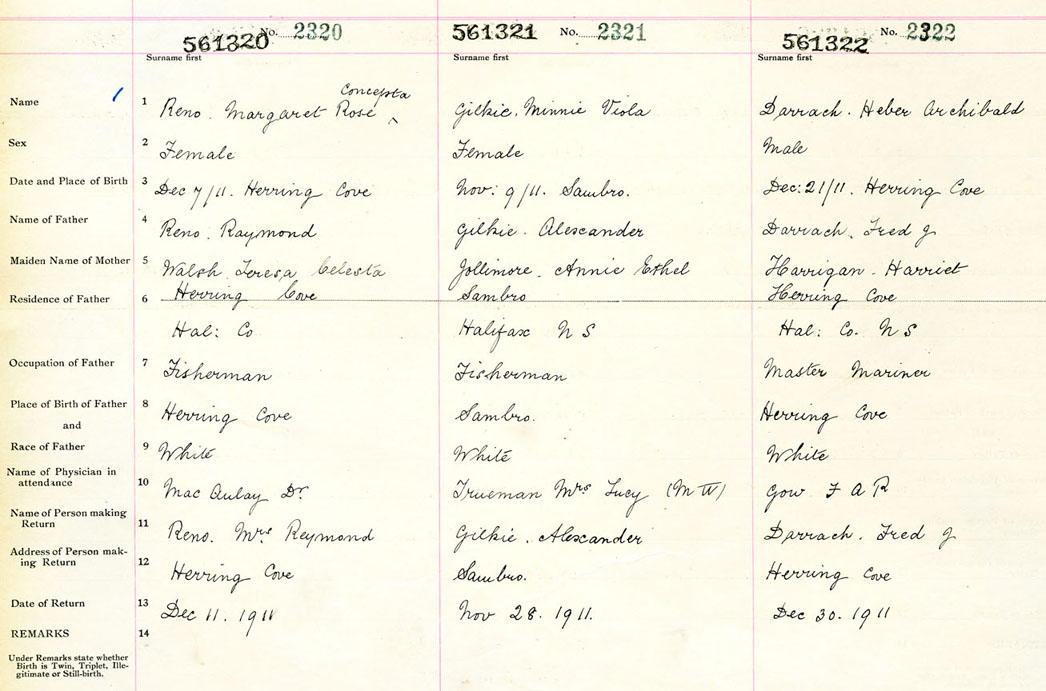 561320 No. 2320 561321 No. 2321 561322 No. 2322
Surname first Surname first Surname first
Concepta
Name 1 Reno. Margaret Rose ^ Gilkie. Minnie Viola Darrach. Heber Archibald
Sex 2 Female Female Male
Date and Place of Birth 3 Dec 7/11. Herring Cove Nov: 9/11. Sambro. Dec: 21/11. Herring Cove
Name of Father 4 Reno. Raymond Gilkie. Alexander Darrach. Fred J
Maiden Name of Mother 5 Walsh Teresa Celesta Jollimore. Annie Ethel Harrigan. Harriet
Residence of Father 6 Herring Cove Sambro Herring Cove
Hal: Co Halifax N S Hal: Co. N S
Occupation of Father 7 Fisherman Fisherman Master Mariner
Place of Birth of Father 8 Herring Cove Sambro. Herring Cove
and
Race of Father 9 White White White
Name of Physician in
attendance 10 Mac Aulay Dr Trueman Mrs Lucy (M W) Gow F A R
Name of Person making
Return 11 Reno. Mrs Reymond Gilkie. Alexander Darrach. Fred J
Address of Person mak-
ing Return 12 Herring Cove Sambro. Herring Cove
Date of Return 13 Dec 11. 1911 Nov 28. 1911. Dec 30. 1911
REMARKS 14
Under Remarks state whether
Birth is Twin, Triplet, Ille-
gitimate or Still-birth.